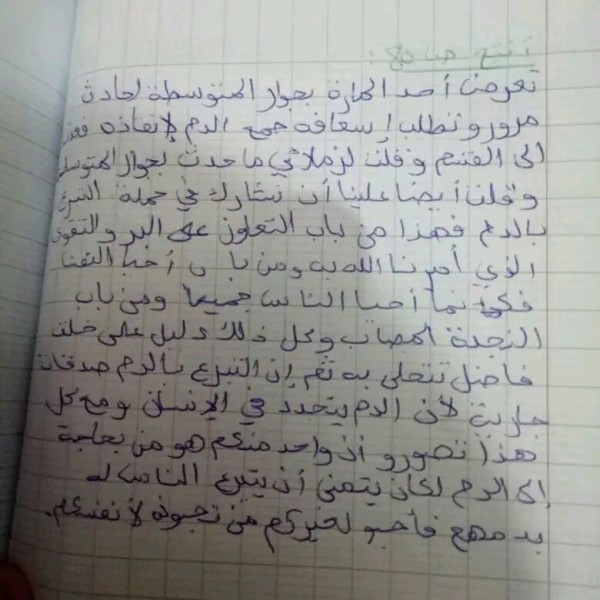 أنتج صا :
تعرض أحد المارة بجوار المتوسطة لحادث
مرور وتطلب إسعافه جمع الدم لإنقاذه فعدت
الى القسم وقلت لزملائي ما حدث بجوار المتوسطة
وقلت أيضا علينا أن نشارك في حملة التبرع
بالدم فهذا من باب التعاون على البر والتقوى
الذي أمرنا الله به ومن باب أحيا النفسا
فكإنما أحيا الناس جميعا ومن باب
النجدة المصاب وكل ذلك دليل على خلق
فاضل تتحلى به ثم إن التبرع بالدم صدقات
جارية لأن الدم يتجدد في الإنسان ومع كل
هذا تصورو أن واحد منكم هو من بحاجة
إلى الدم لكان يتمنى أن يتبرع الناس له
بدمهم فأحبو لغيركم من تحبونه لأنفسكم.